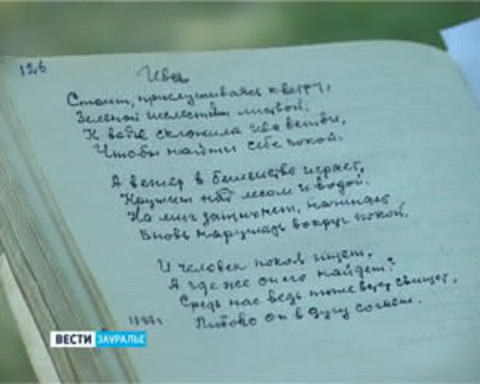 126
Ива
Стоит, прислушиваясь к ветру,
Зелёной шелестит листвой.
К воде склонила ива ветви,
Чтобы найти себе покой.
А ветер в бешенстве играет,
Кружит над лесом и водой.
На миг затихнет, начинает
Вновь нарушать вокруг покой.
И человек покоя ищет,
А где же он его найдет?
Средь нас ведь тоже ветер свищет,
Любого он в дугу согнет.
ВЕСТИ ЗАУРАЛЬЕ